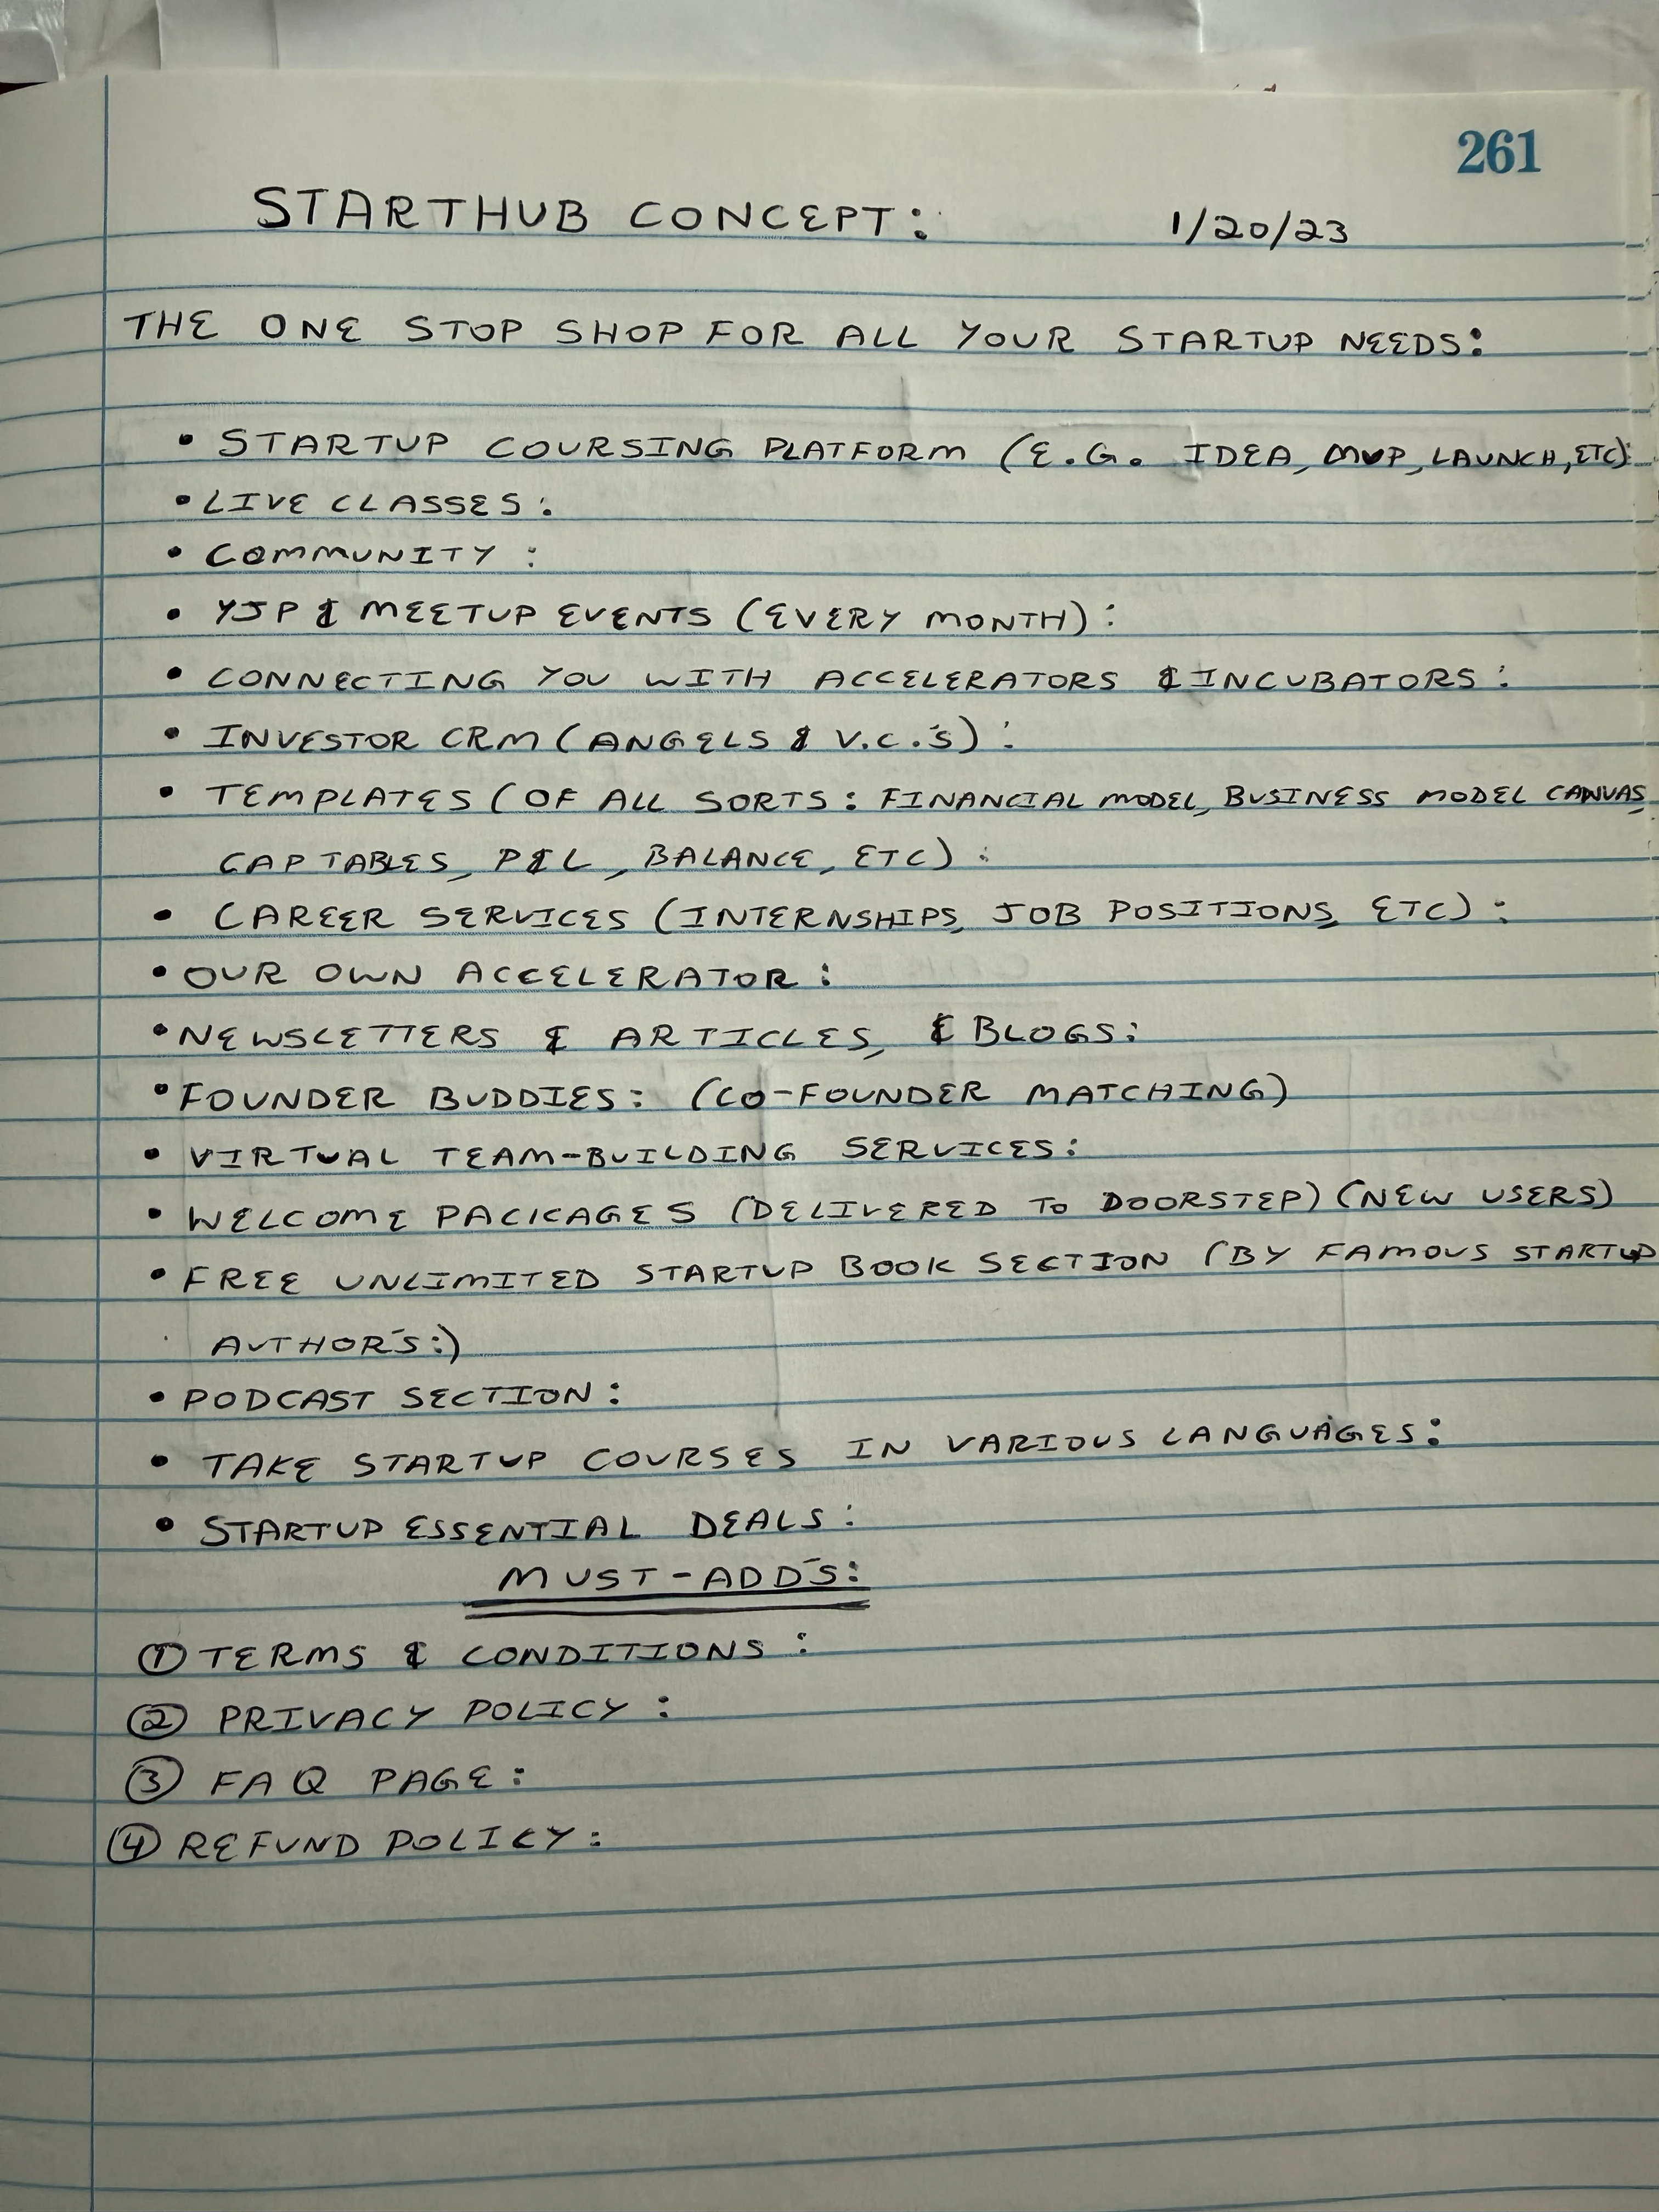 261
STARTHUB CONCEPT: 1/20/23
THE ONE STOP SHOP FOR ALL YOUR STARTUP NEEDS:
• STARTUP COURSING PLATFORM (E.G. IDEA, MVP, LAUNCH, ETC):
• LIVE CLASSES:
• COMMUNITY :
• YJP & MEETUP EVENTS (EVERY MONTH):
• CONNECTING YOU WITH ACCELERATORS & INCUBATORS:
• INVESTOR CRM (ANGELS & V.C.'S) :
• TEMPLATES (OF ALL SORTS: FINANCIAL MODEL, BUSINESS MODEL CANVAS,
CAP TABLES, P&L, BALANCE, ETC) :
• CAREER SERVICES (INTERNSHIPS, JOB POSITIONS, ETC) :
• OUR OWN ACCELERATOR:
• NEWSLETTERS & ARTICLES, & BLOGS:
• FOUNDER BUDDIES: (CO-FOUNDER MATCHING)
• VIRTUAL TEAM-BUILDING SERVICES:
• WELCOME PACKAGES (DELIVERED TO DOORSTEP) (NEW USERS)
• FREE UNLIMITED STARTUP BOOK SECTION (BY FAMOUS STARTUP
AUTHOR'S:)
• PODCAST SECTION:
• TAKE STARTUP COURSES IN VARIOUS LANGUAGES:
• STARTUP ESSENTIAL DEALS:
MUST-ADD'S:
① TERMS & CONDITIONS :
② PRIVACY POLICY :
③ FAQ PAGE:
④ REFUND POLICY: